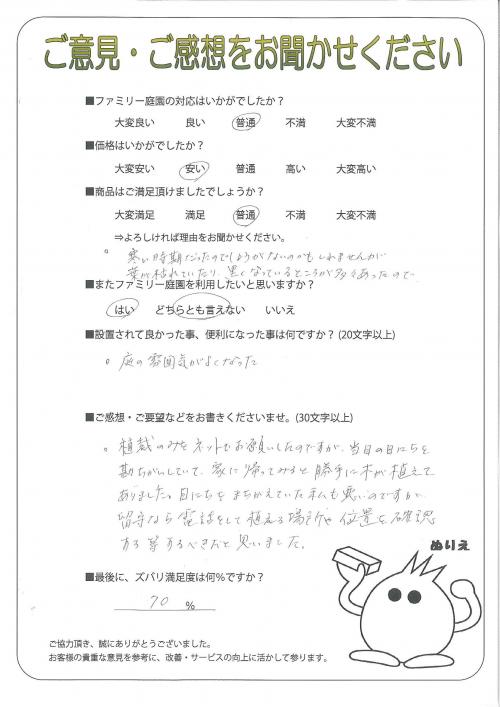 ご意見・ご感想をお聞かせください
■ファミリー庭園の対応はいかがでしたか？
大変良い 良い 普通 不満 大変不満
■価格はいかがでしたか？
大変安い 安い 普通 高い 大変高い
■商品はご満足頂けましたでしょうか？
大変満足 満足 普通 不満 大変不満
⇒よろしければ理由をお聞かせください。
寒い時期だったのでしょうがないのかもしれませんが
葉が枯れていたり、黒くなっているところが多々あったので
■またファミリー庭園を利用したいと思いますか？
はい どちらとも言えない いいえ
■設置されて良かった事、便利になった事は何ですか？(20文字以上)
庭の雰囲気がよくなった
■ご感想・ご要望などをお書きくださいませ。(30文字以上)
植栽のみをネットでお願いしたのですが、当日の日にちを
勘ちがいしていて、家に帰ってみると勝手に木が植えて
ありました。日にちをまちがえていた私も悪いのですが
留守なら電話をして植える場所や位置を確認
する等するべきだと思いました。
ぬりえ
■最後に、ズバリ満足度は何%ですか？
70 %
ご協力頂き、誠にありがとうございました。
お客様の貴重な意見を参考に、改善・サービスの向上に活かして参ります。